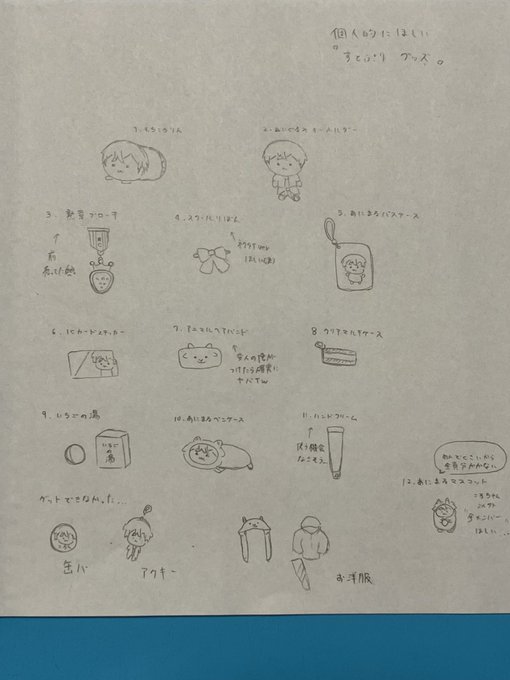 個人的にほしい
『すとぷり グッズ』
1. もちころりん
2. ぬいぐるみキーホルダー
3. 勲章ブローチ
4. スクールリボン
ネクタイver
ほしい(笑)
5. あにまるパスケース
6. ICカードステッカー
7. アニマルヘアバンド
つけたら確実に
ヤバイw
8. クリアマルチケース
9. いちごの湯
いちごの湯
10. あにまるペンケース
11. ハンドクリーム
使う機会
なさそう…
めんどくさいから
全員分かかない
12. あにまるマスコット
全メンバー
ほしい…
ゲットできなかった…
缶バ
アクキー
お洋服